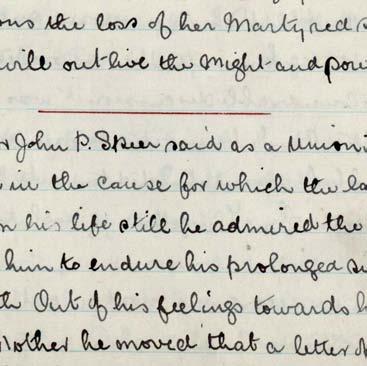 the loss of her Martyred
will outlive the Might and pow
John P. Skeen said as a Union
in the cause for which the la
his life still he admired the
him to endure his prolonged su
Out of his feelings towards h
Mother he moved that a letter of